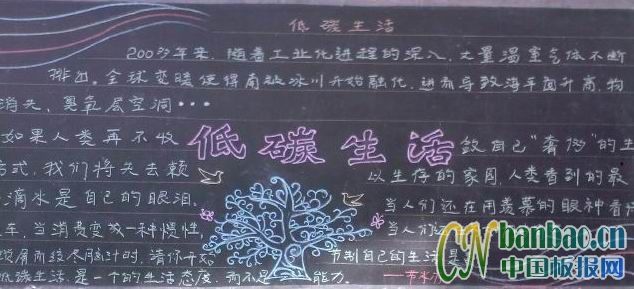 低碳生活
200多年来，随着工业化进程的深入，大量温室气体不断
排出，全球变暖使得南极冰川开始融化，进而导致海平面升高，物
消失，臭氧层空洞···
如果人类再不收
低碳生活
敛自己“奢侈”的生
方式，我们将失去赖
以生存的家园，人类看到的最
滴水是自己的眼泪。
当人们还在用羡慕的眼神看
车，当消费变成一种惯性，
当人们还
请你开始
节制自己的生活
低碳生活，是一个的生活态度，而不是 能力。
——节水
CN banbao.cn
中国板报网